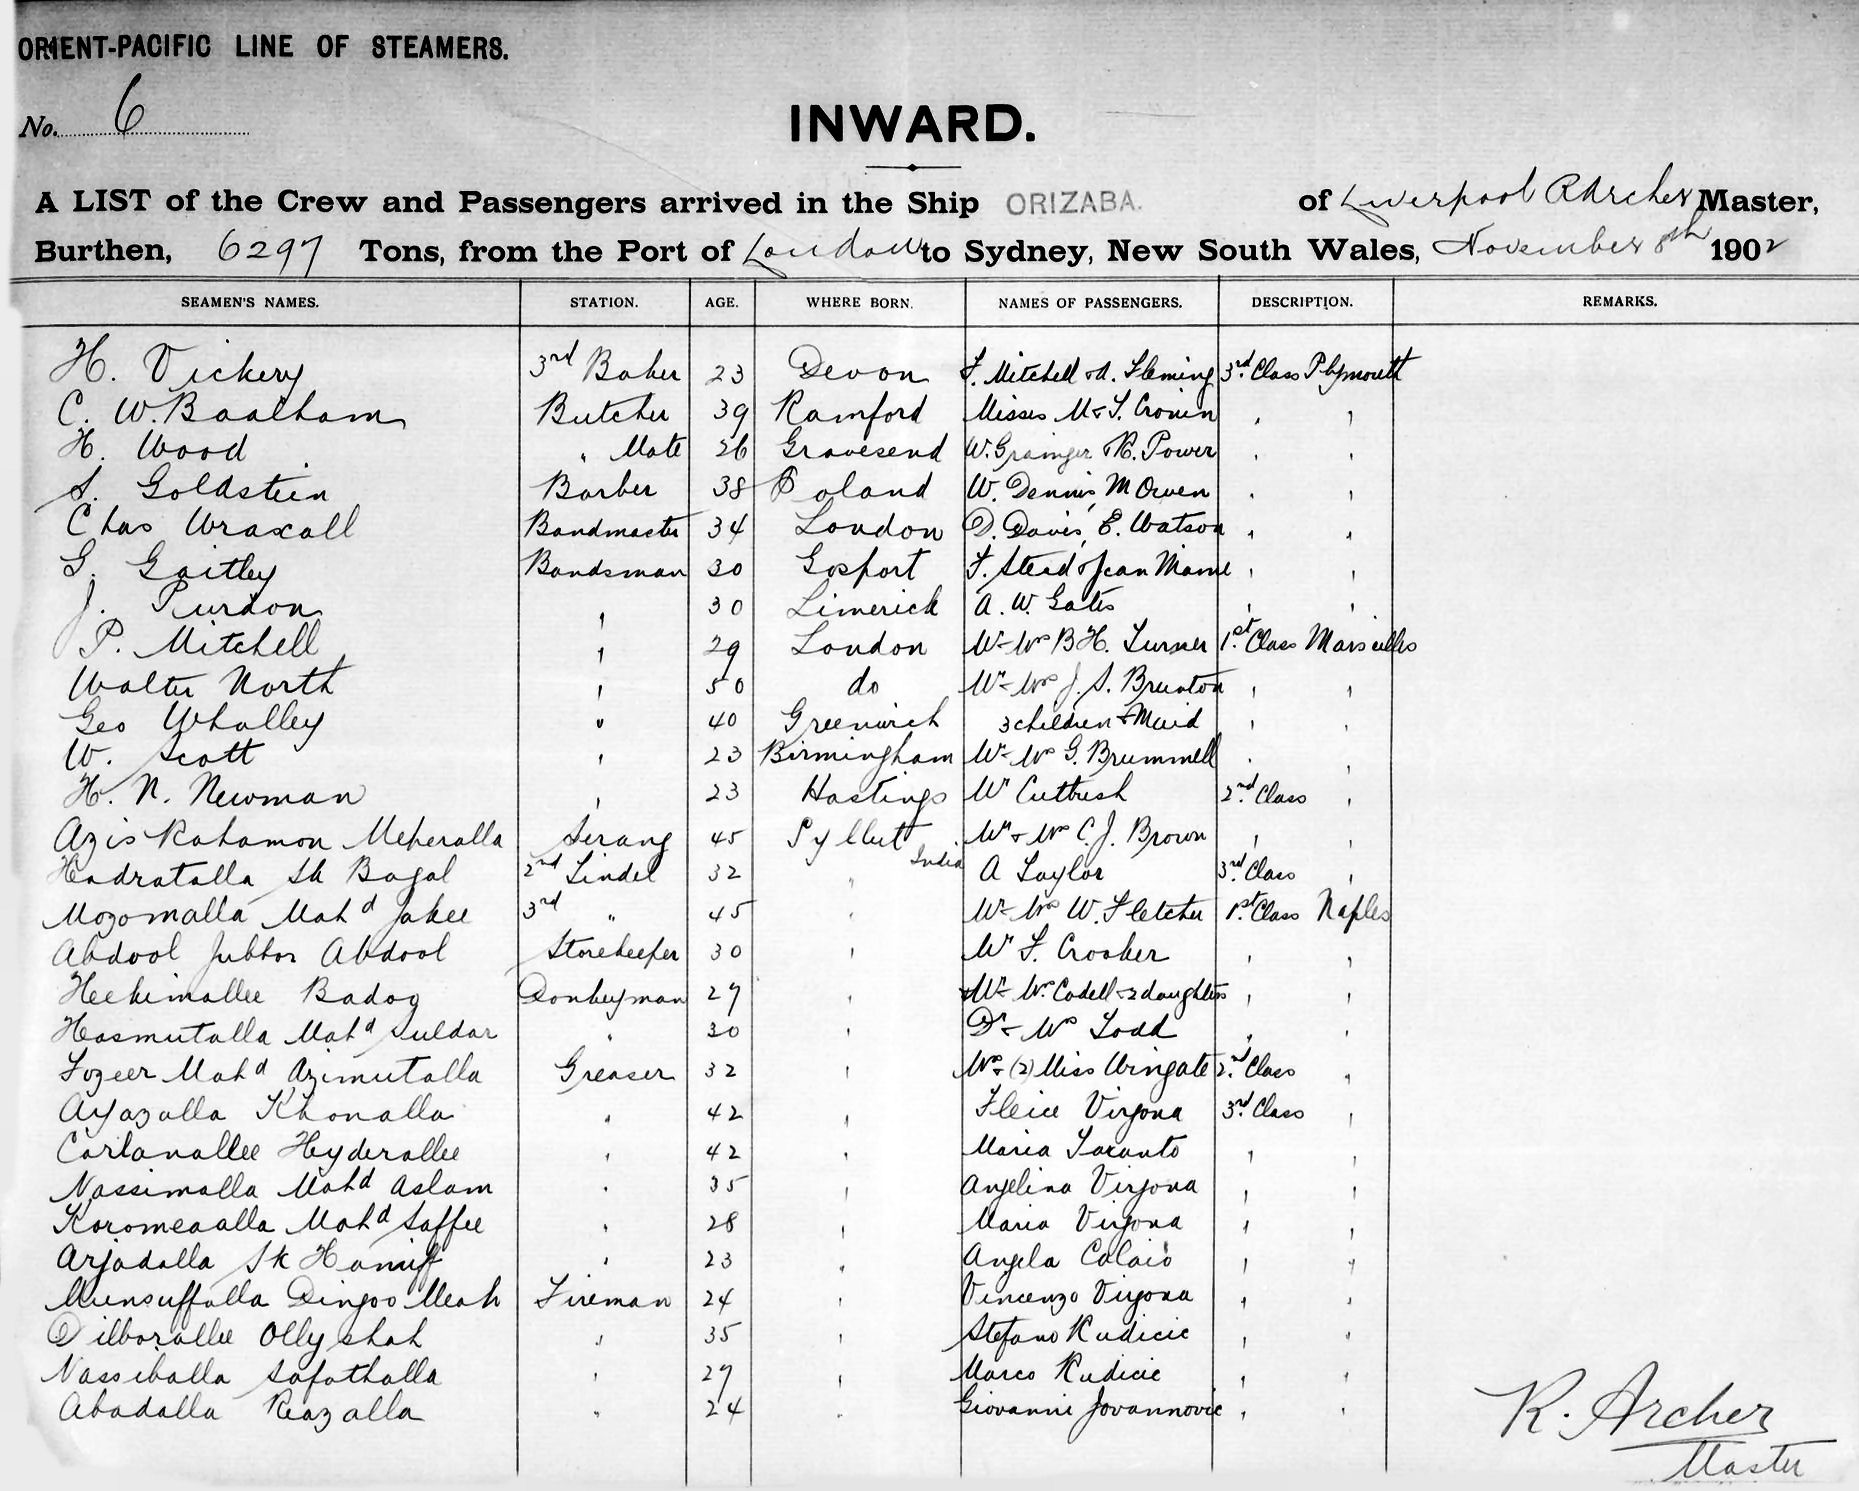 ORIENT-PACIFIC LINE OF STEAMERS.
No. 6
INWARD.
A LIST of the Crew and Passengers arrived in the Ship ORIZABA. of Liverpool R Archer Master,
Burthen, 6297 Tons, from the Port of London to Sydney, New South Wales, November 8th 1902
SEAMEN'S NAMES. STATION. AGE. WHERE BORN. NAMES OF PASSENGERS. DESCRIPTION. REMARKS.
H. Vickery 3rd Baker 23 Devon F. Mitchell & A. Fleming 3rd. Class Plymouth
C. W. Baalham Butcher 39 Ramford Misses M & T. Cronin " "
H. Wood " Mate 26 Gravesend W. Grainger & R. Power " "
S. Goldstein Barber 38 Poland W. Dennis, M Owen " "
Chas Wraxall Bandmaster 34 London D. Davis, E. Watson " "
G. Gaitley Bandsman 30 Gosport F. Stead & Jean Mame " "
J. Purdon " 30 Limerick A. W. Gates " "
P. Mitchell " 29 London Mr & Mrs B H. Turner 1st. Class Marseilles
Walter North " 50 do Mr & Mrs J. S. Brunton " "
Geo Whalley " 40 Greenwich 3 children & Maid " "
W. Scott " 23 Birmingham Mr & Mrs G. Brummell " "
H. N. Newman " 23 Hastings Mr Cutbush 2nd. Class "
Azis Rahamon Meheralla Serang 45 Syllut India Mr & Mrs C. J. Brown " "
Hadratalla Sk Bagal 2nd Tindel 32 " A Taylor 3rd. Class "
Mozomalla Mahd Jakee 3rd " 45 " Mr & Mrs W. Fletcher 1st. Class Naples
Abdool Jubbar Abdool Storekeeper 30 " Mr F. Crooker " "
Heekimallee Badoo Donkeyman 27 " Mr & Mrs Cadell & 2 daughters " "
Hasmutalla Mahd Suldar " 30 " Dr & Mrs Todd " "
Fozeer Mahd Azimutalla Greaser 32 " Mrs & (2) Miss Wingate 2nd. Class "
Ayazalla Khonalla " 42 " Fleice Virgona 3rd. Class "
Carlanallee Hyderallee " 42 " Maria Taranto " "
Nassimalla Mahd Aslam " 35 " Angelina Virgona " "
Koromeaalla Mahd Saffee " 28 " Maria Virgona " "
Arjadalla Sk Haniff " 23 " Angela Calaio " "
Munsuffalla Dingoo Meah Fireman 24 " Vincenzo Virgona " "
Dilborallee Olly shah " 35 " Stefano Rudicic " "
Nassiballa Safathalla " 27 " Marco Rudicic " "
Abadalla Reazalla " 24 " Giovanni Jovannovic " "
R. Archer
Master